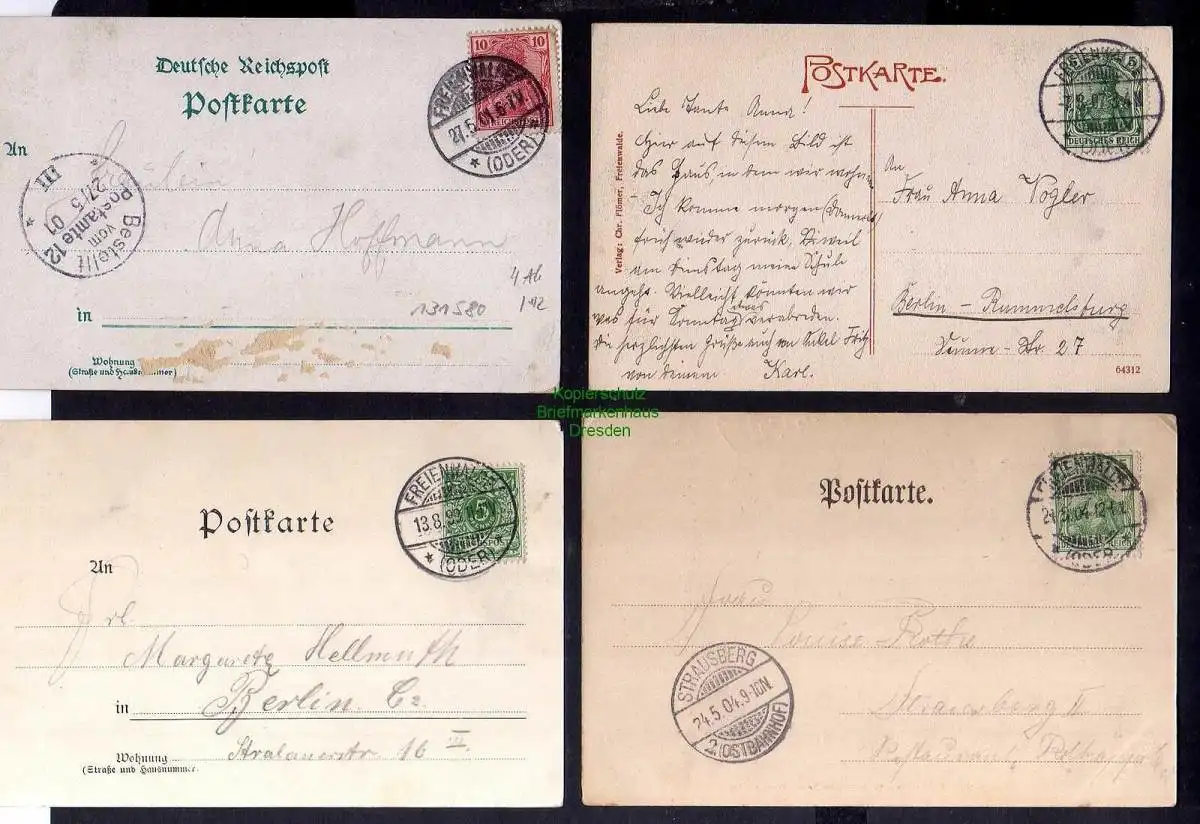 Deutsche Reichspost
Postkarte
10 10
FREIENWALDE
27.5.01.6-7N.
* (ODER) *
An
Fräulein
Anna Hoffmann
Bestellt
vom
Postamte 12
27/5 01
III
4 Ab
131580
in
Wohnung
(Straße und Hausnummer)
POSTKARTE.
FREIENWALDE
DEUTSCHES REICH
Liebe Tante Anna!
Hier auf diesem Bild ist
das Haus, in dem wir wohnen
Ich komme morgen
früh wieder zurück,
am Dinstag meine Schule
angeht. Vielleicht könnten wir
was für Sonntag verabreden.
Die herzlichsten Grüße auch von Onkel Fritz
von deinem Karl.
Verlag: Chr. Flömer, Freienwalde.
An
Frau Anna Vogler
Berlin - Rummelsburg
Str. 27
64312
Kopierschutz
Briefmarkenhaus
Dresden
Postkarte
FREIENWALDE
13.8.
* (ODER) *
5
An
Frl.
Margarete Hellmuth
in Berlin C2
Wohnung Stralauerstr 16 III.
(Straße und Hausnummer)
Postkarte.
FREIENWALDE
* (ODER)
Frau
Louise Rothe
Strausberg II
STRAUSBERG
24.5.04.9-10N.
2 (OSTBAHNHOF)